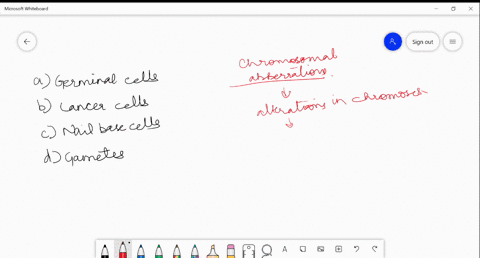 Microsoft Whiteboard
Sign out
a) Germinal cells
b) Cancer cells
c) Nail base cells
d) Gametes
Chromosomal
abberration
alterations in chromosch
A